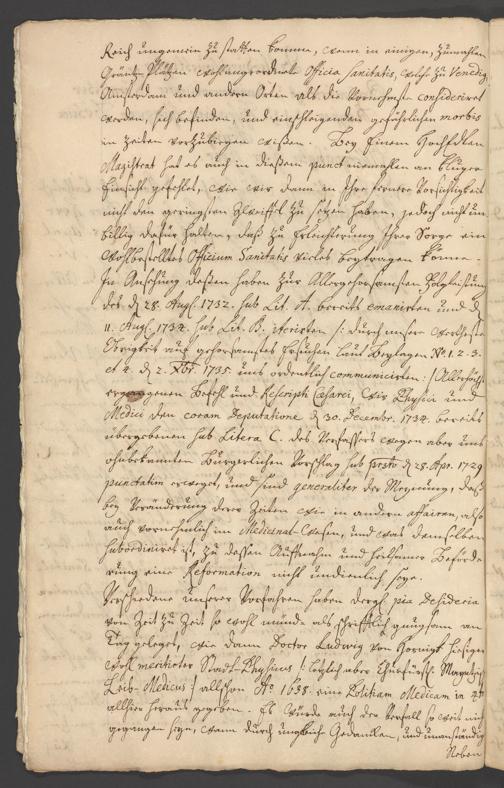 Reich ungemein zu statten komme, wenn in einigen, zumahlen
Gräntz Plätzen wohlangeordnete Officia Sanitatis, welche zu Venedig,
Amsterdam und andern Orten als die Vornehmste consideriret
werden, sich befinden, und einschleigenden gefährlichen morbis
in Zeiten vorzubiegen wissen. Bey Einem HochEdlen
Magistrat hat es auch in dießem punct niemahlen an kluger
Einsicht gefehlet, wie wir dann in Ihre fernere Vorsichtigkeit
nicht den geringsten Zweiffel zu setzen haben, jedoch nicht un-
billig darfür halten, daß zu Erleichterung Ihrer Sorge ein
wohlbestelltes Officium Sanitatis vieles beytragen könne.
In Ansehung deßen haben zur Allergehorsamsten Folgleistung
des d. 28. Augl. 1732. sub Lit. A. bereits emanirten und d.
11. Augl. 1734. sub Lit. B. iterirten /: durch unsere
Obrigkeit auf gehorsamstes Ersuchen laut Beylagen No. 1. 2. 3.
et 4. d. 2. Xbr. 1735 uns ordentlich communicirten :/ Allerhöchst
ergangenen Befehl und Rescripti Cæsarei, Wir Physici und
Medici den coram Deputatione d. 30. Decembr. 1734. bereits
übergebenen sub Litera C. des Verfassers wegen aber uns
ohnbekannten Bürgerlichen Vorschlag sub præs. d. 28. Apr. 1729
punctatim erweget, und sind generaliter der Meynung, daß
bey Veränderung derer Zeiten wie in andern affairen, also
auch vornehmlich im Medicinal-Wesen, und was demselben
subordiniret ist, zu dessen Auffnahm und heilsamer Beförde-
rung eine Reformation nicht undienlich seye.
Verschiedene unserer Vorfahren haben dergl. pia desideria
von Zeit zu Zeit so wohl münd- als schrifftlich gnugsam an
Tag geleget, wie dann Doctor Ludwig von Hörnigk hiesiger
wohl meritirter Stadt-Physicus /: letzlich aber Churfürstl. Mayntzis.
Leib-Medicus :/ allschon Ao. 1638. eine Politiam Medicam in 4to
allhier heraus gegeben. Es würde auch der Verfall so weit nicht
gegangen seyn, wann durch ungleiche Gedancken, und unanständig
Neben